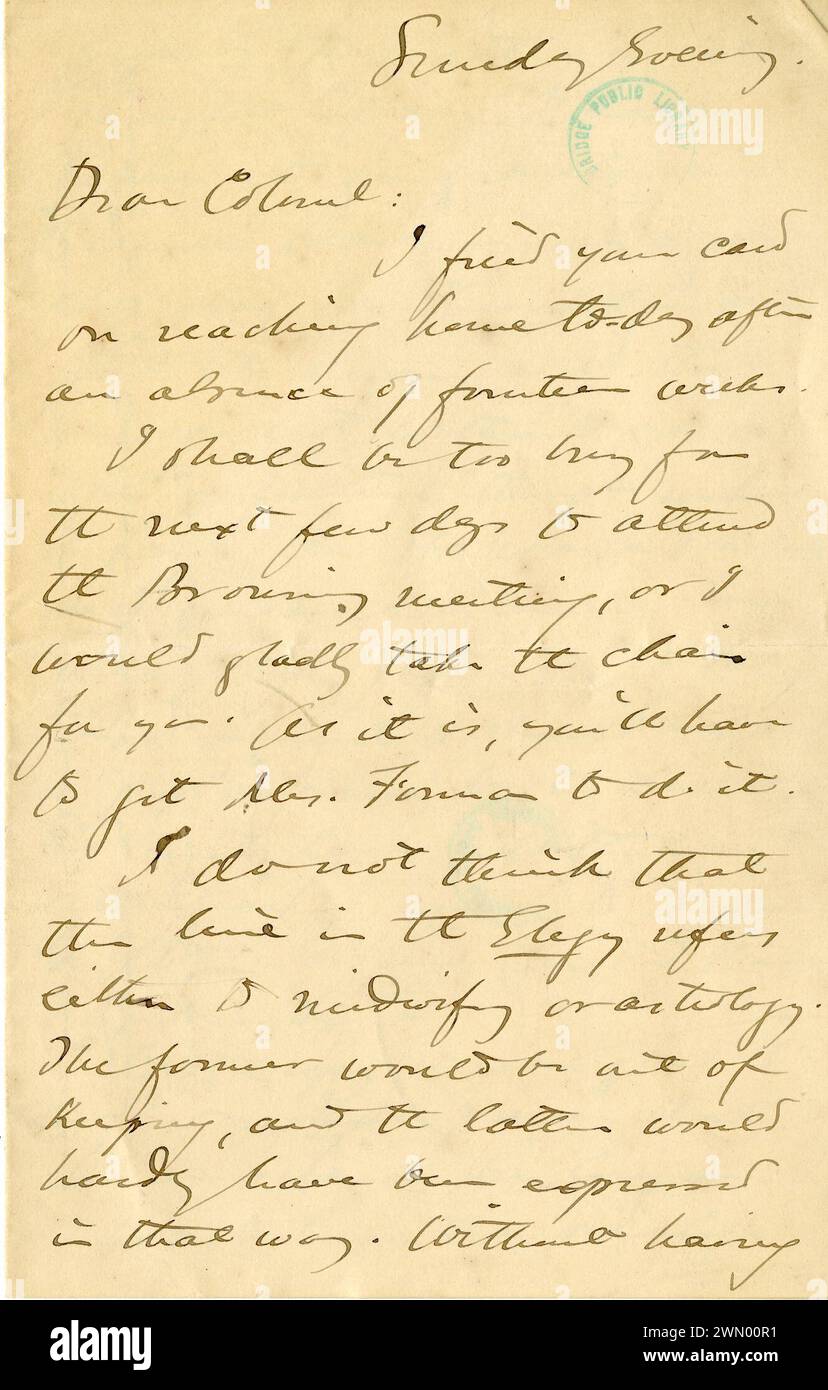 Sunday Evening.
BRIDGE PUBLIC LIBRARY
Dear Colonel:
I find your card
on reaching home to-day after
an absence of fourteen weeks.
I shall be too busy for
the next few days to attend
the Browning meeting, or I
would gladly take the chair
for you. As it is, you'll have
to get Mrs. Forman to do it.
I do not think that
the line in the Elegy refers
either to midwifery or astrology.
The former would be out of
keeping, and the latter would
hardly have been expressed
in that way. Without having
alamy
Image ID: 2WN00R1
www.alamy.com